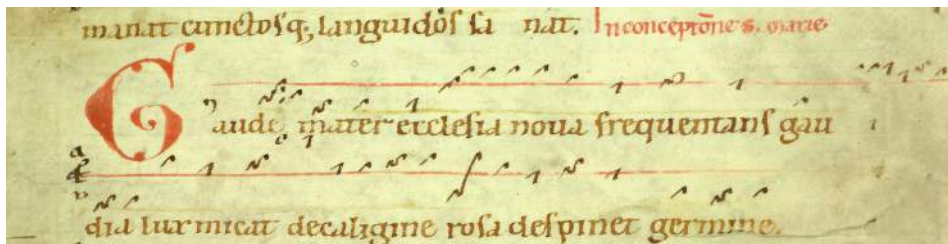 manat cunctosq; languidos sa nat. In conceptōne s. marie
Gaude mater ecclesia noua frequentans gau
dia lux micat decaligine rosa despineti germine.